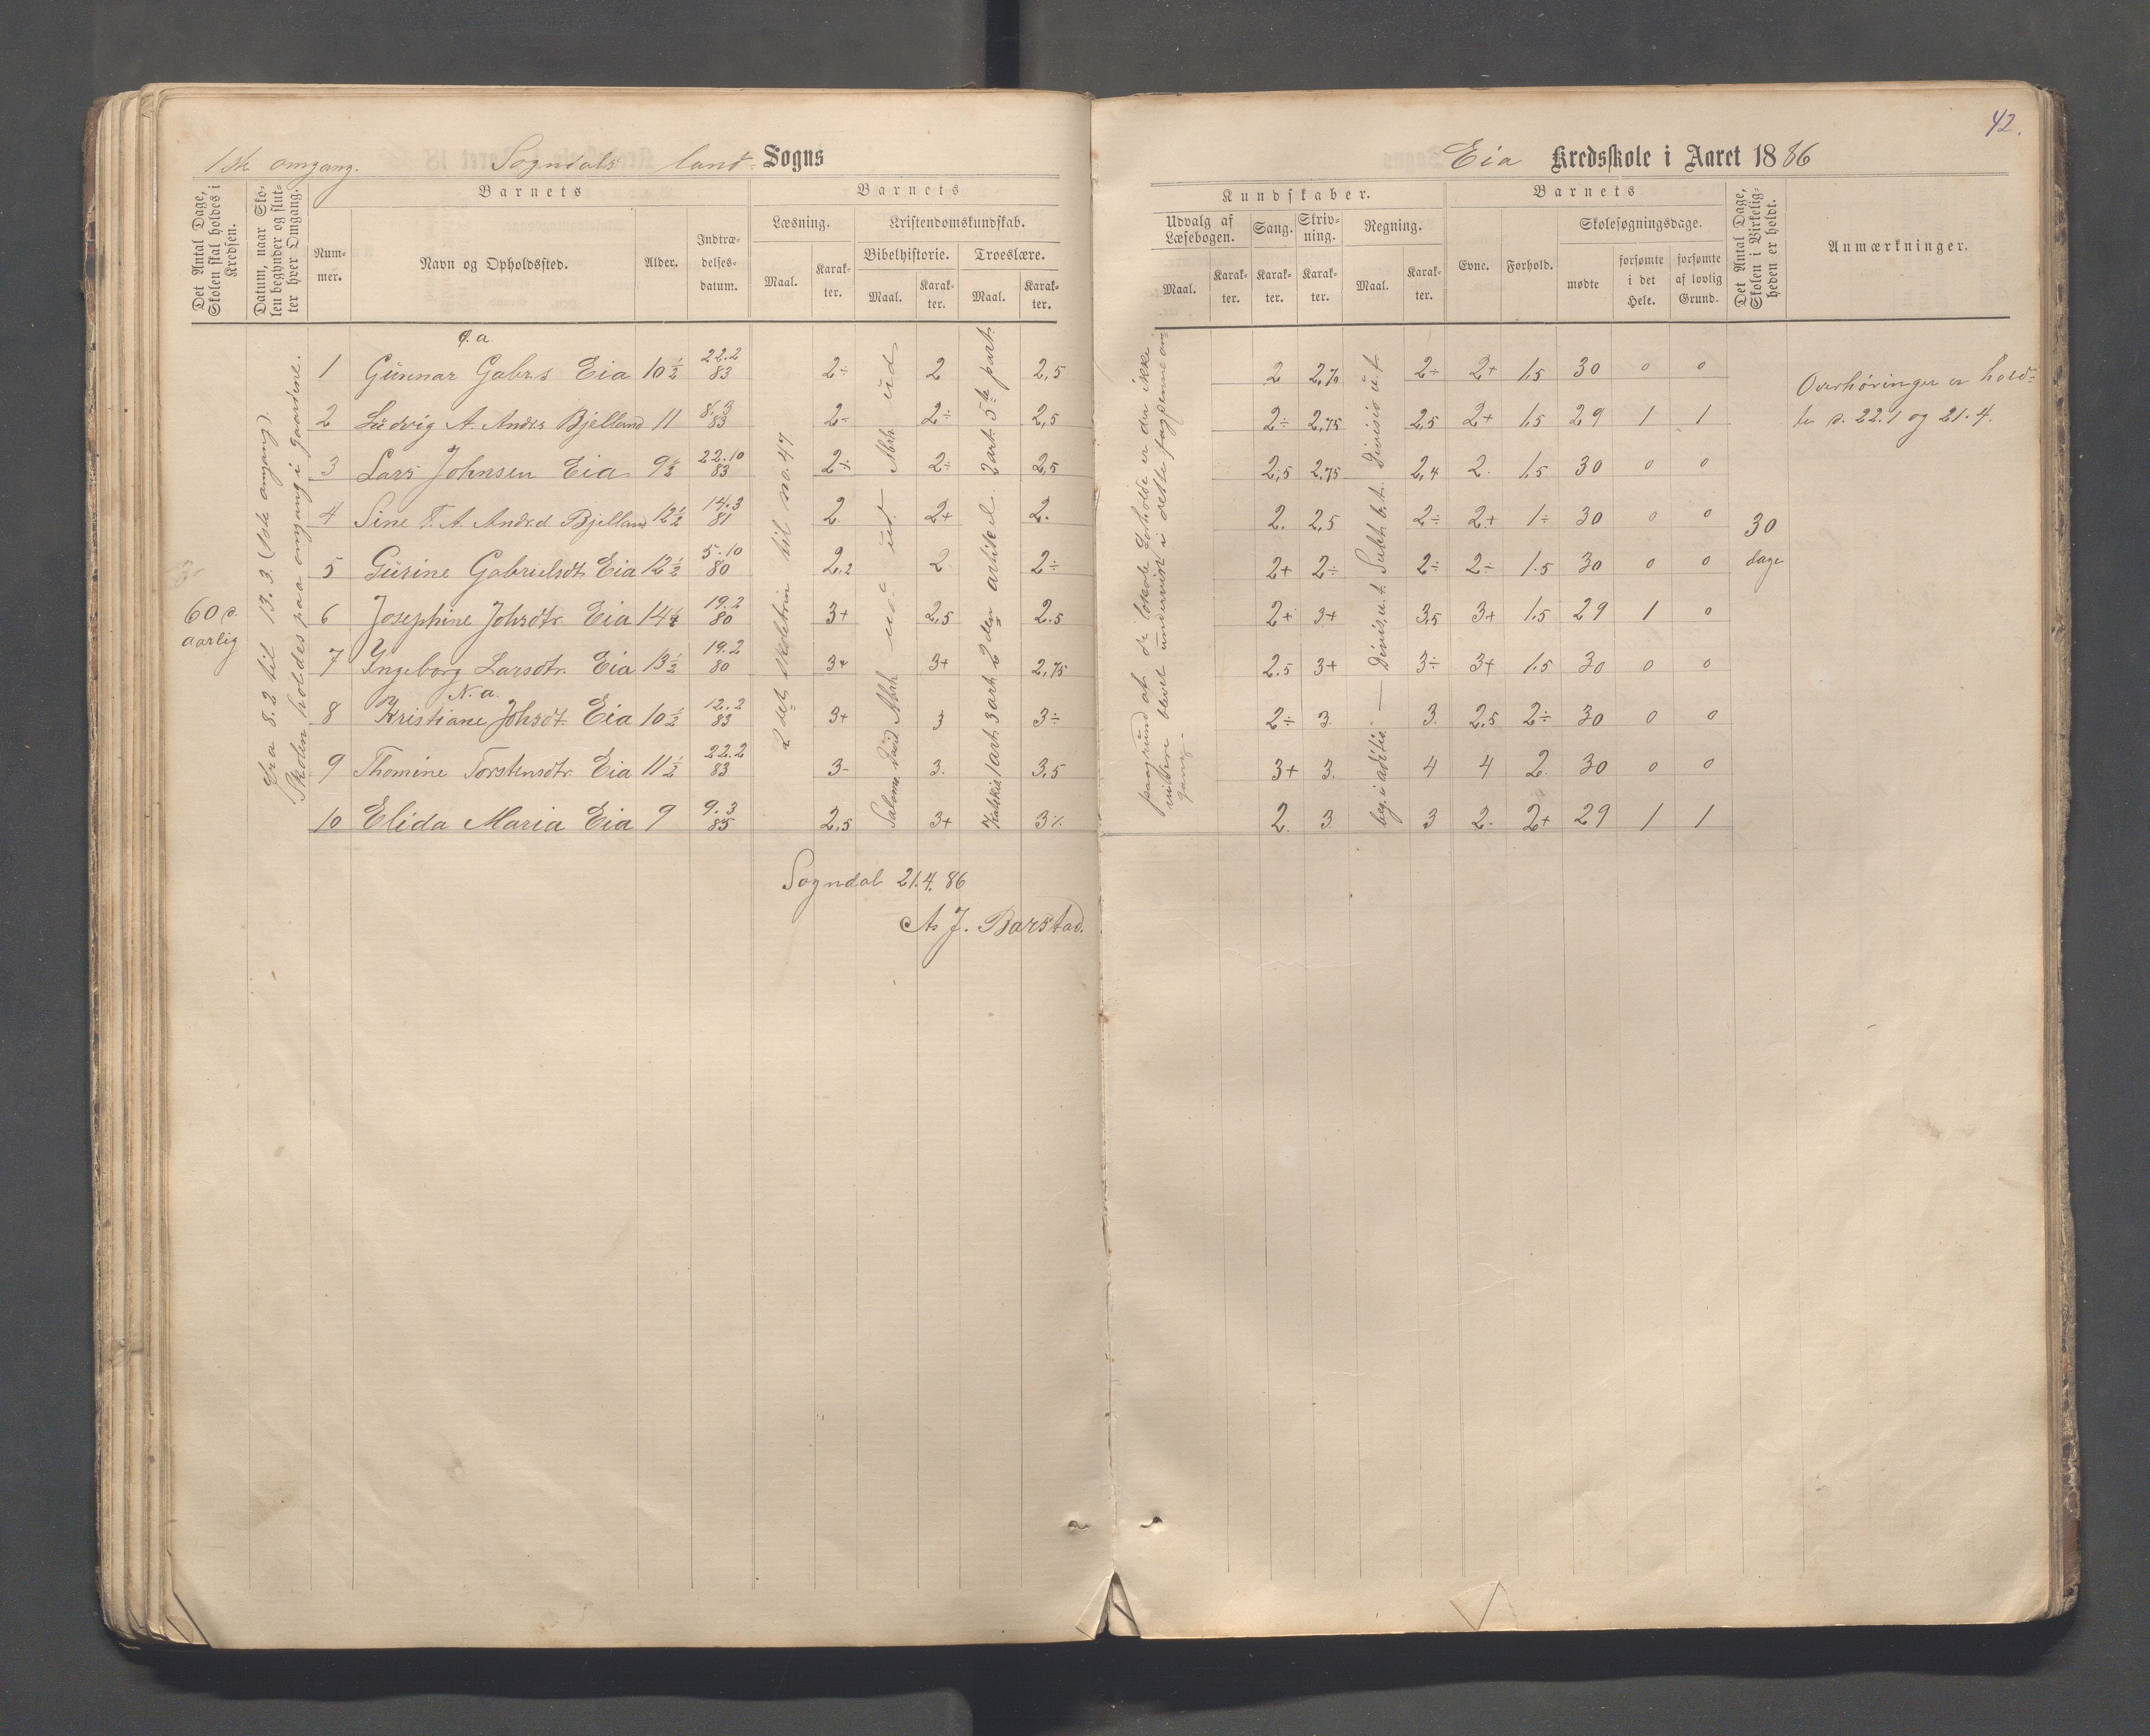 42.
1ste omgang. Sogndals land- Sogns
Eia Kredsskole i Aaret 1886
Det Antal Dage, Skolen skal holdes i Kredsen.
Datum, naar Skolen begynder og slutter hver Omgang.
Barnets
Nummer.
Navn og Opholdssted.
Alder.
Indtrædelsesdatum.
Barnets
Læsning.
Maal.
Karakter.
Kristendomskundskab.
Bibelhistorie.
Maal.
Karakter.
Troeslære.
Maal.
Karakter.
Kundskaber.
Udvalg af Læsebogen.
Maal.
Karakter.
Sang.
Karakter.
Skrivning.
Karakter.
Regning.
Maal.
Karakter.
Barnets
Evne.
Forhold.
Skolesøgningsdage.
mødte
forsømte i det Hele.
forsømte af lovlig Grund.
Det Antal Dage, Skolen i Virkeligheden er holdt.
Anmærkninger.
60 d. aarlig
Fra 8.2 til 13.3. (1ste omgang).
Skolen holdes paa omgang i gaardene.
1 Gunnar Gabrs Eia 10½ 22.2 83 2÷ 2 2,5 2 2,70 2÷ 2+ 1,5 30 0 0
2 Ludvig A. Andrs Bjelland 11 83 2÷ 2÷ 2,5 2÷ 2,75 2,5 2+ 1,5 29 1 1
3 Lars Johnsen Eia 9½ 22.10 83 2÷ 2÷ 2,5 2,5 2,75 2,4 2. 1,5 30 0 0
4 Sine T. A. Andr.d Bjelland 12½ 14.3 81 2 2+ 2. 2. 2,5 2÷ 2+ 1÷ 30 0 0
5 Gurine Gabrielsdt. Eia 12½ 5.10 80 2,2 2 2÷ 2+ 2÷ 2÷ 2÷ 1.5 30 0 0
6 Josephine Johsdtr. Eia 14¼ 19.2 80 3+ 2,5 2.5 2+ 3+ 3,5 3+ 1.5 29 1 0
7 Ingeborg Larsdtr. Eia 13½ 19.2 80 3+ 3+ 2,75 2.5 3+ 3÷ 3+ 1.5 30 0 0
N. a.
8 Kristiane Johsdt. Eia 10½ 12.2 83 3+ 3 3÷ 2÷ 3. 3. 2,5 2÷ 30 0 0
9 Thomine Torstensdtr. Eia 11½ 22.2 83 3- 3. 3,5 3+ 3. 4 4 2. 30 0 0
10 Elida Maria Eia 9 9.3 85 2,5 3+ 3% 2. 3. 3 2. 2+ 29 1 1
2det skoletrin til no. 47
2 art. 5te part.
3 art. 2den artikel
paagrund at de lokale forholde er der ikke
videre blevet undervist i dette fag denne omgang.
30 dage
Overhøringer er holdte d. 22.1 og 21.4.
Sogndal 21.4.86
A. J. Barstad.